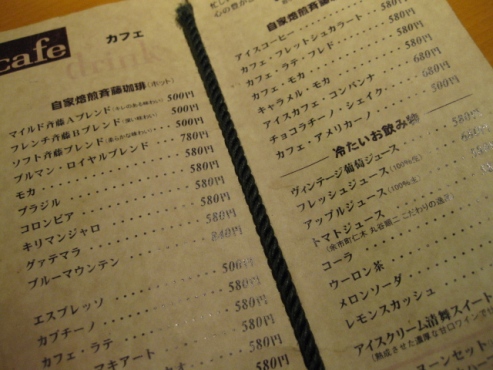 cafe
drink
カフェ
自家焙煎斉藤珈琲(ホット)
マイルド斉藤Aブレンド 500円
フレンチ斉藤Bブレンド 500円
ソフト斉藤ブレンド 500円
ブルマン・ロイヤルブレンド 780円
モカ 580円
ブラジル 580円
コロンビア 580円
キリマンジャロ 580円
グァテマラ 580円
ブルーマウンテン 840円
エスプレッソ 500円
カプチーノ 580円
カフェ・ラテ 580円
マキアート 580円
580円
自家焙煎斉藤珈琲
アイスコーヒー 580円
カフェ・フレッドショカラート 580円
カフェ・ラテ・フレド 580円
カフェ・モカ 580円
キャラメル・モカ 680円
アイスカフェ・コンパンナ 580円
チョコラチーノ・シェイク 680円
カフェ・アメリカーノ 500円
冷たいお飲み物
ヴィンテージ葡萄ジュース 580円
フレッシュジュース(100%生)
アップルジュース(100%生)
トマトジュース
(余市町仁木 丸谷順二 こだわりの逸品)
コーラ
ウーロン茶
メロンソーダ
レモンスカッシュ
アイスクリーム清舞スイート
(熟成させた濃厚な甘口ワインで
コーンセット